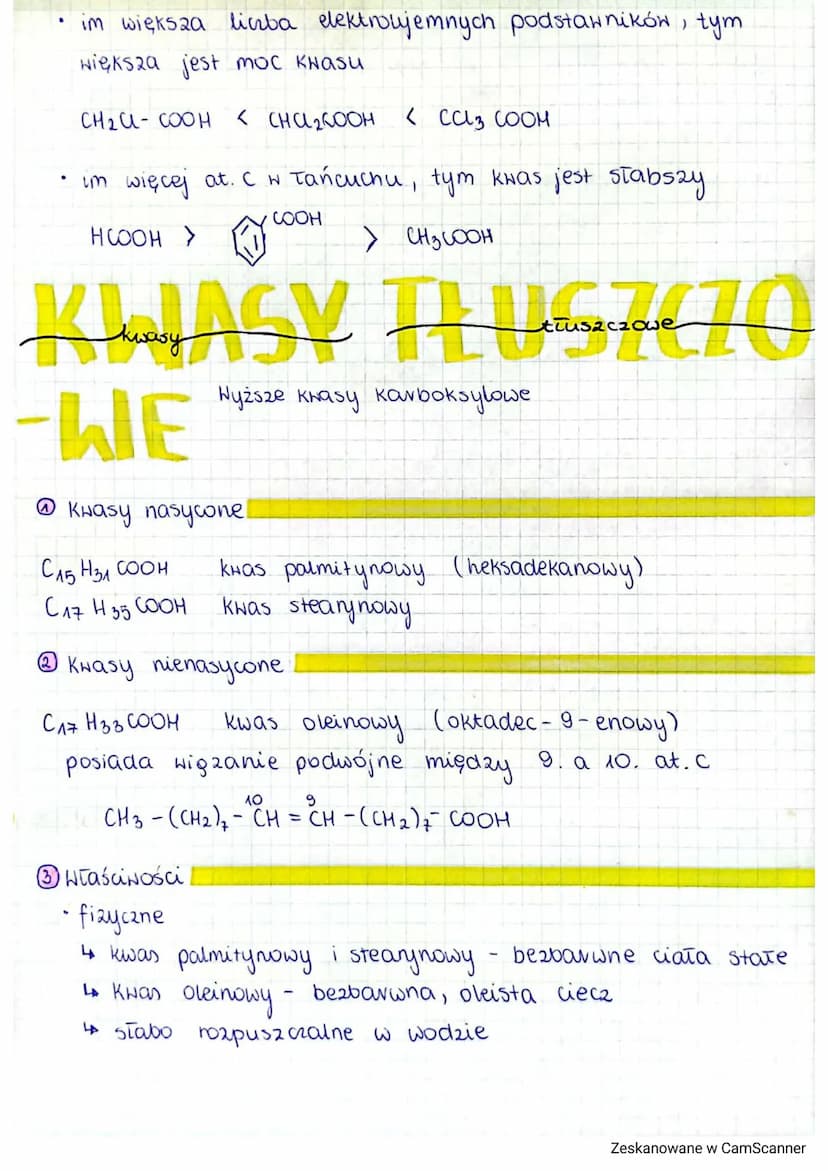 • im większa liczba elektroujemnych podstawników, tym
większa jest moc kwasu
CH2Cl- COOH < CHCl2COOH < CCl3 COOH
• im więcej at. C w łańcuchu, tym kwas jest słabszy
HCOOH > COOH > CH3COOH
KWASY TŁUSZCZO
kwasy tłuszczowe
-WE Wyższe kwasy karboksylowe
① Kwasy nasycone
C15 H31 COOH kwas palmitynowy (heksadekanowy)
C17 H35 COOH kwas stearynowy
② Kwasy nienasycone
C17 H33 COOH kwas oleinowy (oktadec-9-enowy)
posiada wiązanie podwójne między 9. a 10. at. C
CH3 -(CH2)7- 10 CH = 9 CH -(CH2)7- COOH
③ Właściwości
• fizyczne
↳ kwas palmitynowy i stearynowy - bezbarwne ciała stałe
↳ kwas oleinowy - bezbarwna, oleista ciecz
↳ słabo rozpuszczalne w wodzie
Zeskanowane w CamScanner